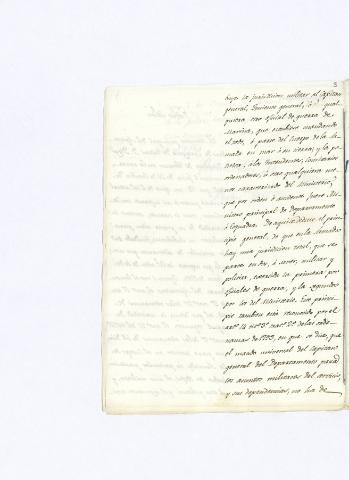 3
buye la jurisdiccion militar al Capitan
general, Teniente general, ú qual-
quiera otro oficial de guerra de
Marina, que estubiere mandando
el todo, ó parte del Cuerpo de la Ar-
mada en mar ó en tierra; y la po-
litica, á los Intendentes, Comisarios
ordenadores, ú otro qualquiera me-
nos caracterizado del Ministerio,
que por orden ó accidente fuere Mi-
nistro principal de Departamento
ó Esquadra. De aqui se deduce el prin-
cipio general, de que en la Armada
hay una jurisdiccion total, que se
parte en dos, á saver, militar y
politica, exercida la primera, por
oficiales de guerra, y la segunda
por los del Ministerio. Este princi-
pio tambien está reconocido por el
art.º 14 tit.º 3.º trat.º 2.º de las orde-
nanzas de 1793, en que se dice, que
el mando universal del Capitan
general del Departamento para
los asuntos militares del servicio,
y sus dependencias, no ha de